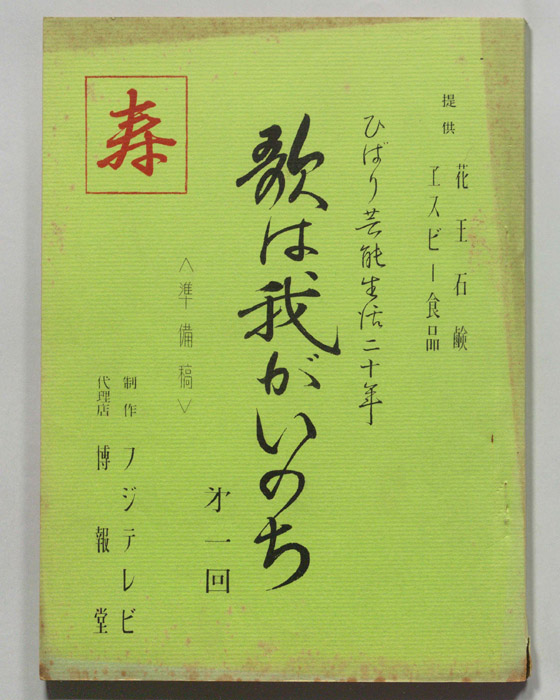 提供
花王石鹸
ヱスビー食品
ひばり芸能生活二十年
歌は我がいのち
第一回
〈準備稿〉
寿
制作 フジテレビ
代理店 博報堂